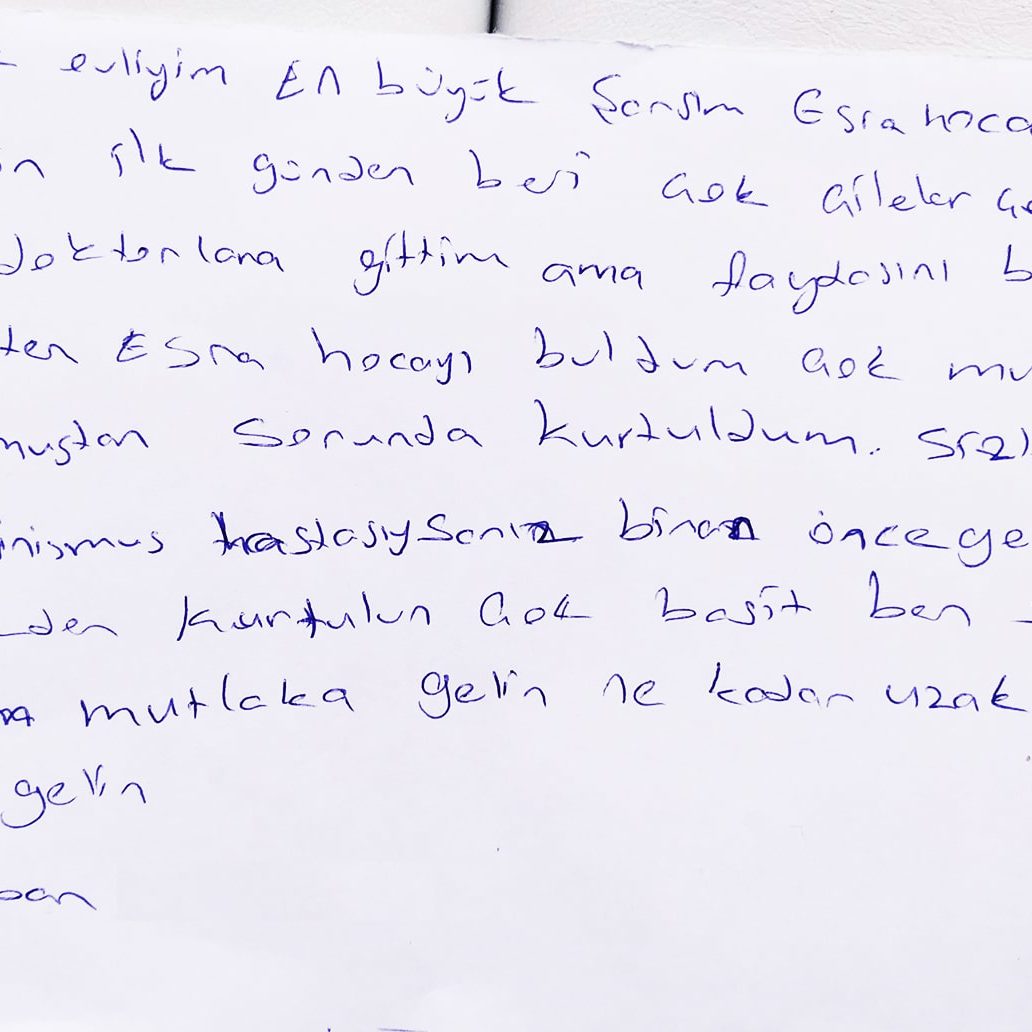 evliyim En büyük Şansım Esra hoca
ilk günden beri çok aileler
doktorlara gittim ama faydasını b
ten Esra hocayı buldum çok mu
muştan Sorunda kurtuldum. Sizl
inismus hastasıysanız biran önce ge
den kurtulun Çok basit ben
mutlaka gelin ne kadar uzak
gelin
ban